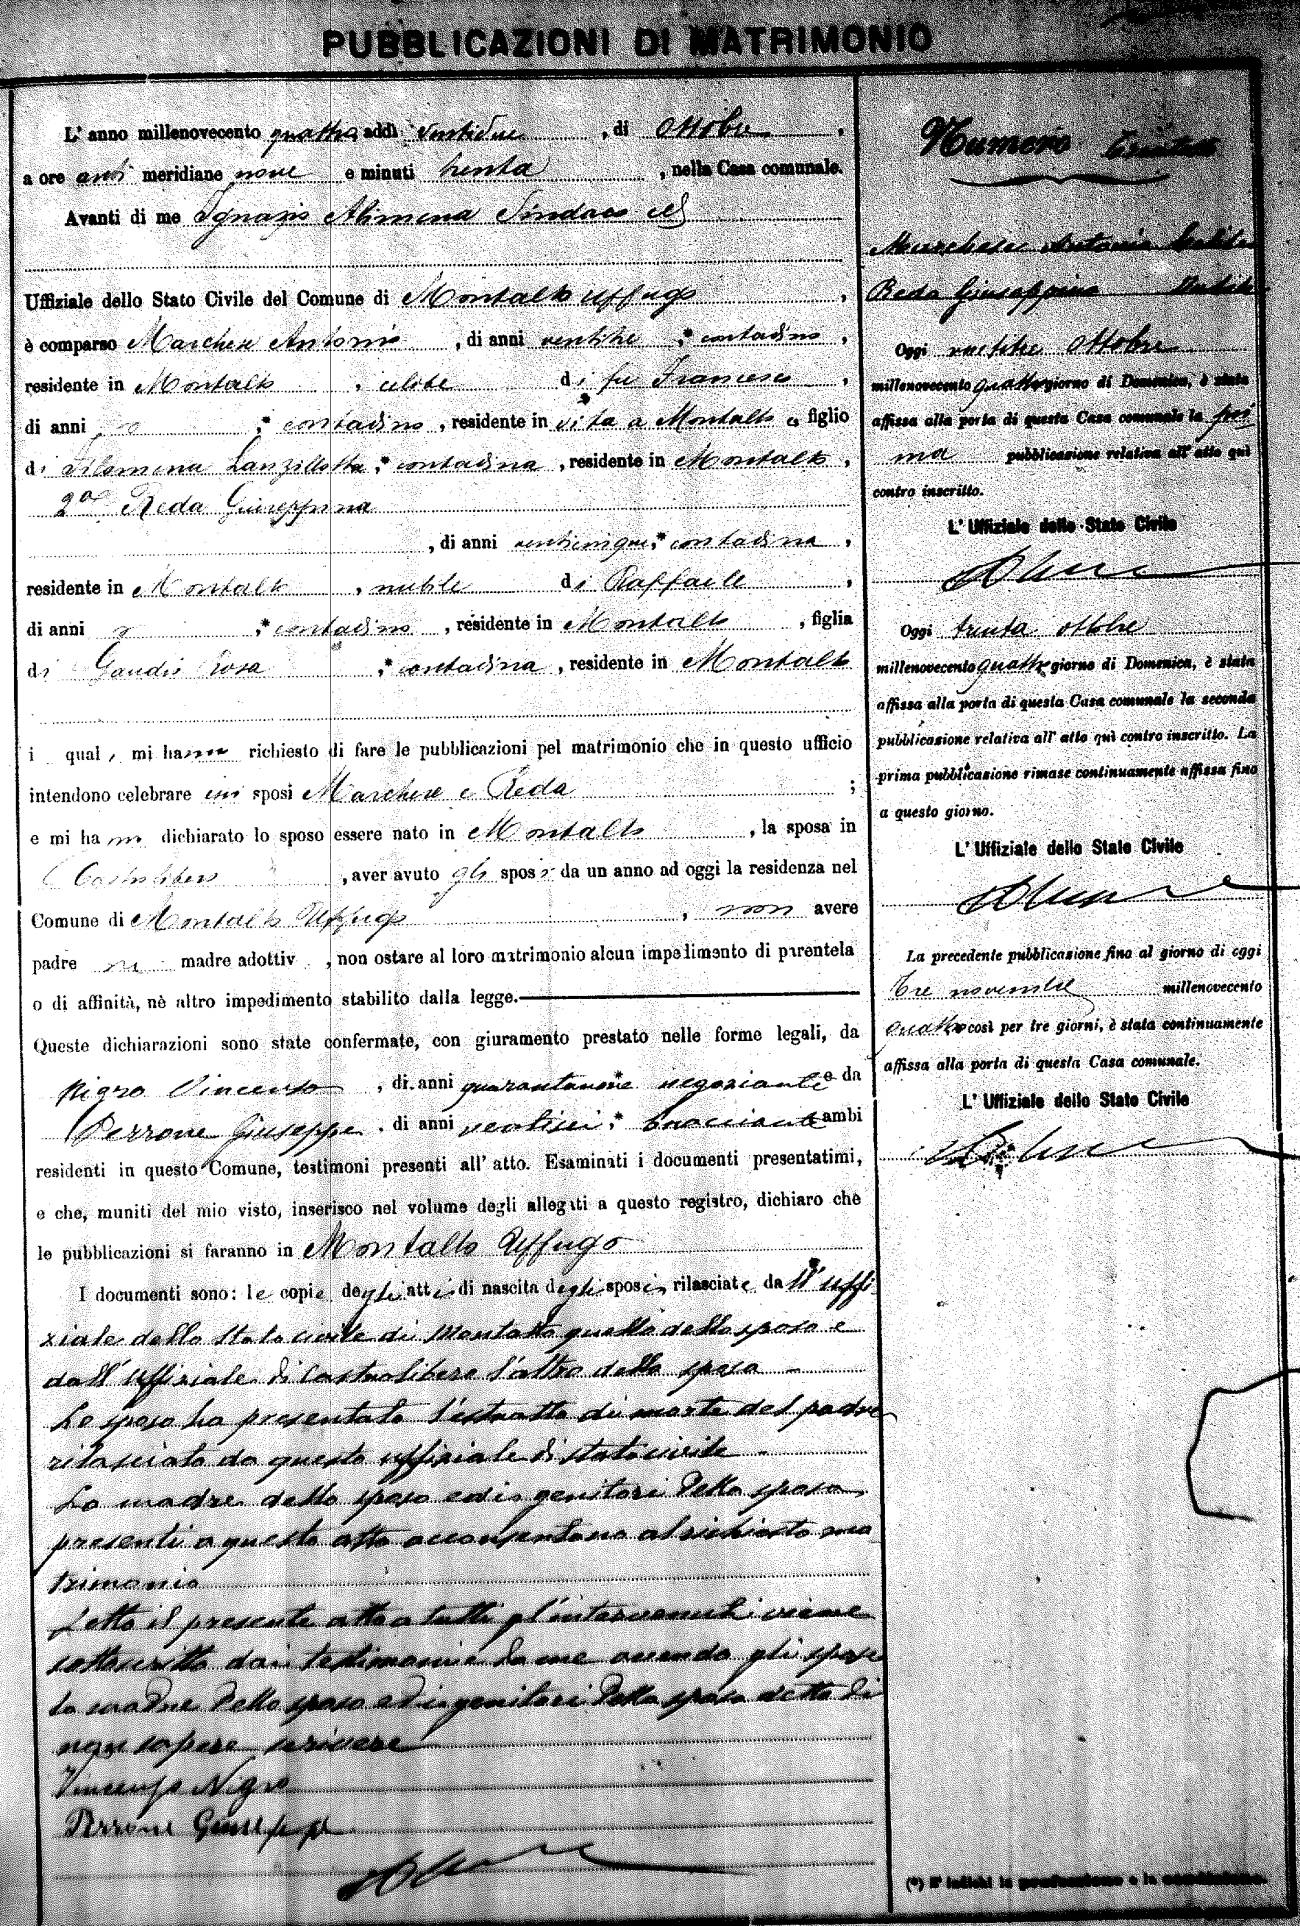 PUBBLICAZIONI DI MATRIMONIO
L' anno millenovecento quattro addì ventidue, di Ottobre,
a ore anti meridiane nove e minuti trenta, nella Casa comunale.
Avanti di me Ignazio Alimena Sindaco ed
Uffiziale dello Stato Civile del Comune di Montalto Uffugo,
è comparso Marchese Antonio, di anni ventitre, * contadino,
residente in Montalto, celibe di fu Francesco,
di anni ;* contadino, residente in vita a Montalto e figlio
di Filomena Lanzillotta, * contadina, residente in Montalto,
2° Reda Giuseppina
, di anni venticinque, * contadina,
residente in Montalto, nubile di Raffaele,
di anni ;* contadino, residente in Montalto, figlia
di Gaudio Rosa ;* contadina, residente in Montalto
i quali mi hanno richiesto di fare le pubblicazioni pel matrimonio che in questo ufficio
intendono celebrare essi sposi Marchese e Reda ;
e mi hanno dichiarato lo sposo essere nato in Montalto, la sposa in
Castrolibero, aver avuto gli sposi da un anno ad oggi la residenza nel
Comune di Montalto Uffugo, non avere
padre ne madre adottiv , non ostare al loro matrimonio alcun impedimento di parentela
o di affinità, nè altro impedimento stabilito dalla legge.
Queste dichiarazioni sono state confermate, con giuramento prestato nelle forme legali, da
Nigro Vincenzo, di anni quarantanove * negoziante e da
Perrone Giuseppe, di anni ventisei, * bracciante ambi
residenti in questo Comune, testimoni presenti all' atto. Esaminati i documenti presentatimi,
e che, muniti del mio visto, inserisco nel volume degli allegati a questo registro, dichiaro che
le pubblicazioni si faranno in Montalto Uffugo
I documenti sono: le copie degli atti di nascita degli sposi, rilasciate da ll'uffi
ziale dello stato civile di Montalto quella dello sposo e
dall'Uffiziale di Castrolibero l'altra della sposa
Lo sposo ha presentato l'estratto di morte del padre
rilasciato da questo uffiziale di stato civile
La madre dello sposo ed i genitori della sposa
presenti a questo atto acconsentono al richiesto ma
trimonio
Letto il presente atto a tutti gl'intervenuti viene
sottoscritto dai testimoni e da me avendo gli sposi
la madre dello sposo ed i genitori della sposa detto di
non sapere scrivere
Vincenzo Nigro
Perrone Giuseppe
Numero
Marchese Antonio Celibe
Reda Giuseppina Nubile
Oggi ventitre Ottobre
millenovecento quattro giorno di Domenica, è stata
affissa alla porta di questa Casa comunale la pri
ma pubblicazione relativa all' atto quì
contro inscritto.
L' Uffiziale dello Stato Civile
Oggi trenta ottobre
millenovecento quattro giorno di Domenica, è stata
affissa alla porta di questa Casa comunale la seconda
pubblicazione relativa all' atto quì contro inscritto. La
prima pubblicazione rimase continuamente affissa fino
a questo giorno.
L' Uffiziale dello Stato Civile
La precedente pubblicazione fino al giorno di oggi
Tre novembre millenovecento
quattro così per tre giorni, è stata continuamente
affissa alla porta di questa Casa comunale.
L' Uffiziale dello Stato Civile
(*) S' indichi la professione o la condizione.